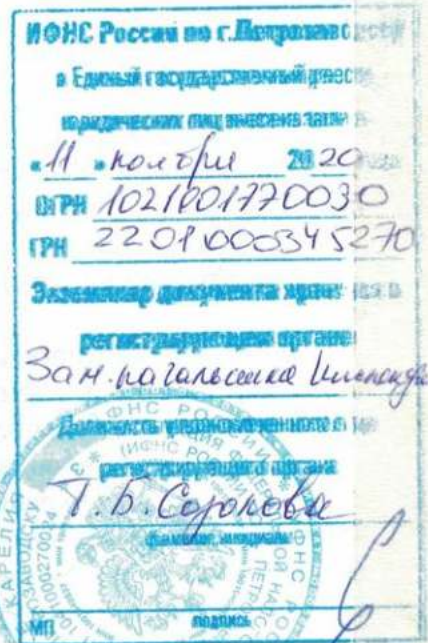 ИФНС России по г.Петрозаводску
в Единый государственный реестр
юридических лиц внесена запись
«11» ноября 2020 года
ОГРН 1021001770030
ГРН 2201000345270
Экземпляр документа хранится в
регистрирующем органе
Зам. начальника инспекции
Должность уполномоченного лица
регистрирующего органа
фамилия, инициалы
МП подпись